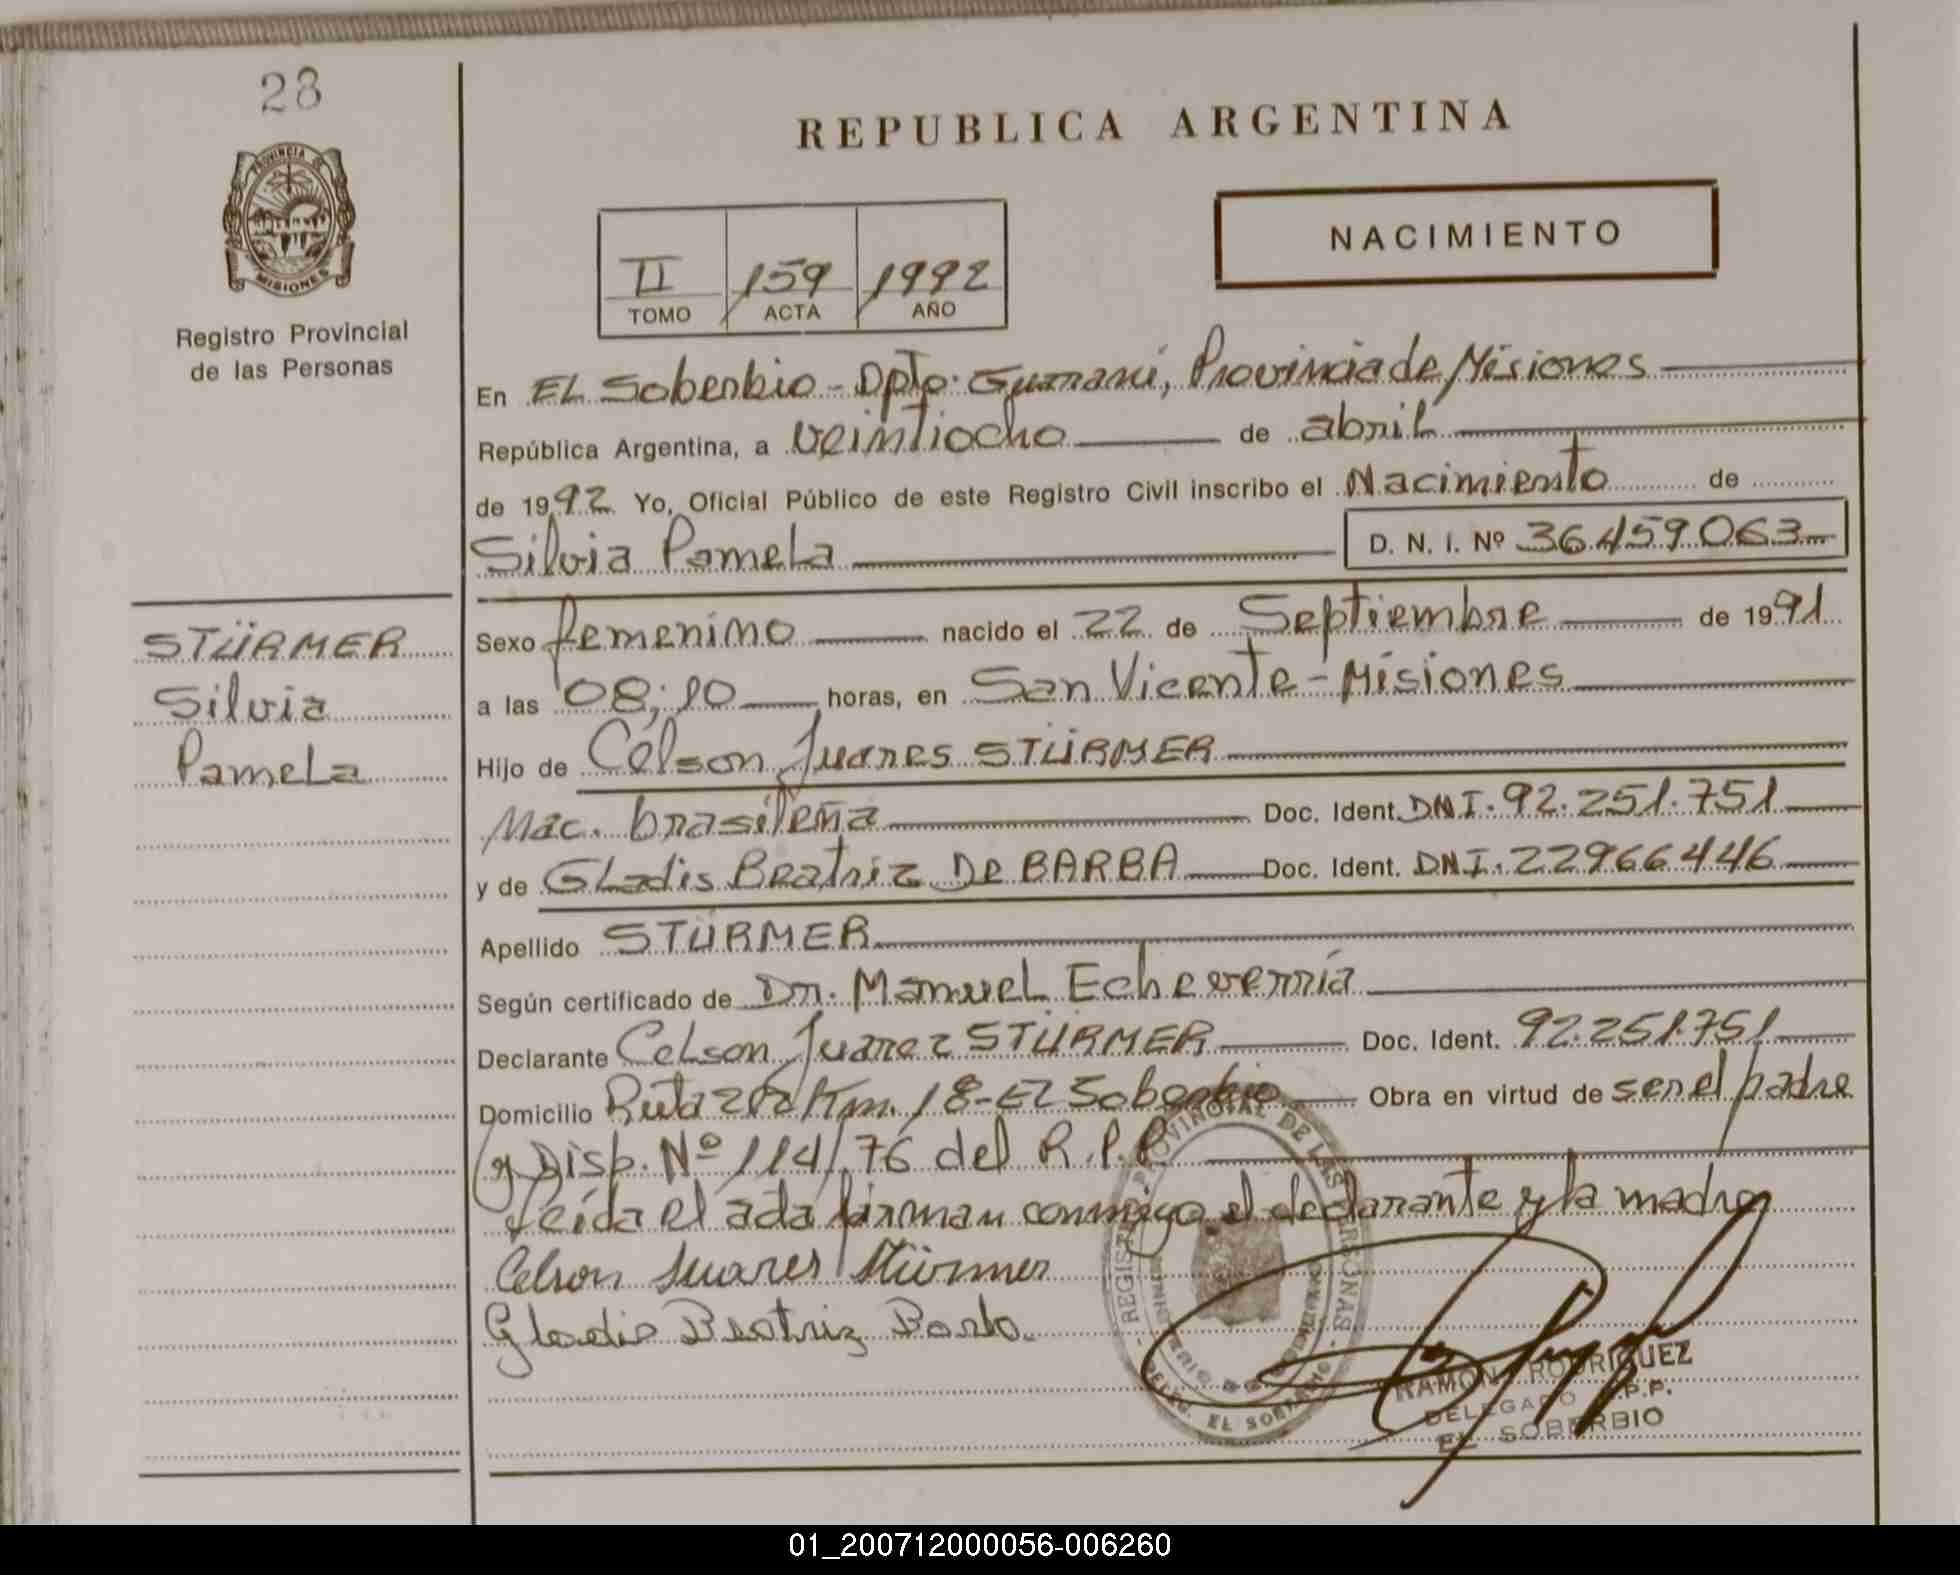 28
REPUBLICA ARGENTINA
PROVINCIA DE
MISIONES
Registro Provincial
de las Personas
II 159 1992
TOMO ACTA AÑO
NACIMIENTO
En EL Soberbio - Dpto. Guaraní, Provincia de Misiones
República Argentina, a veintiocho de abril
de 1992 Yo, Oficial Público de este Registro Civil inscribo el Nacimiento de
Silvia Pamela D. N. I. Nº 36.459.063
STÜRMER
Silvia
Pamela
Sexo femenino nacido el 22 de Septiembre de 1991
a las 08;10 horas, en San Vicente - Misiones
Hijo de Celson Juares STÜRMER
Nac. brasileña Doc. Ident. DNI. 92.251.751
y de Gladis Beatriz De BARBA Doc. Ident. DNI. 22966446
Apellido STÜRMER
Según certificado de Dr. Manuel Echeverría
Declarante Celson Juarez STÜRMER Doc. Ident. 92.251.751
Domicilio Ruta 202 Km. 18 - El Soberbio Obra en virtud de ser el padre
y Disp. Nº 114/76 del R.P.P.
Leída el acta firman conmigo el declarante y la madre
Celson Juares Stürmer
Gladis Beatriz Barba
REGISTRO PROVINCIAL DE LAS PERSONAS
DELEG. EL SOBERBIO
RAMON RODRIGUEZ
DELEGADO R.P.P.
EL SOBERBIO
01_200712000056-006260